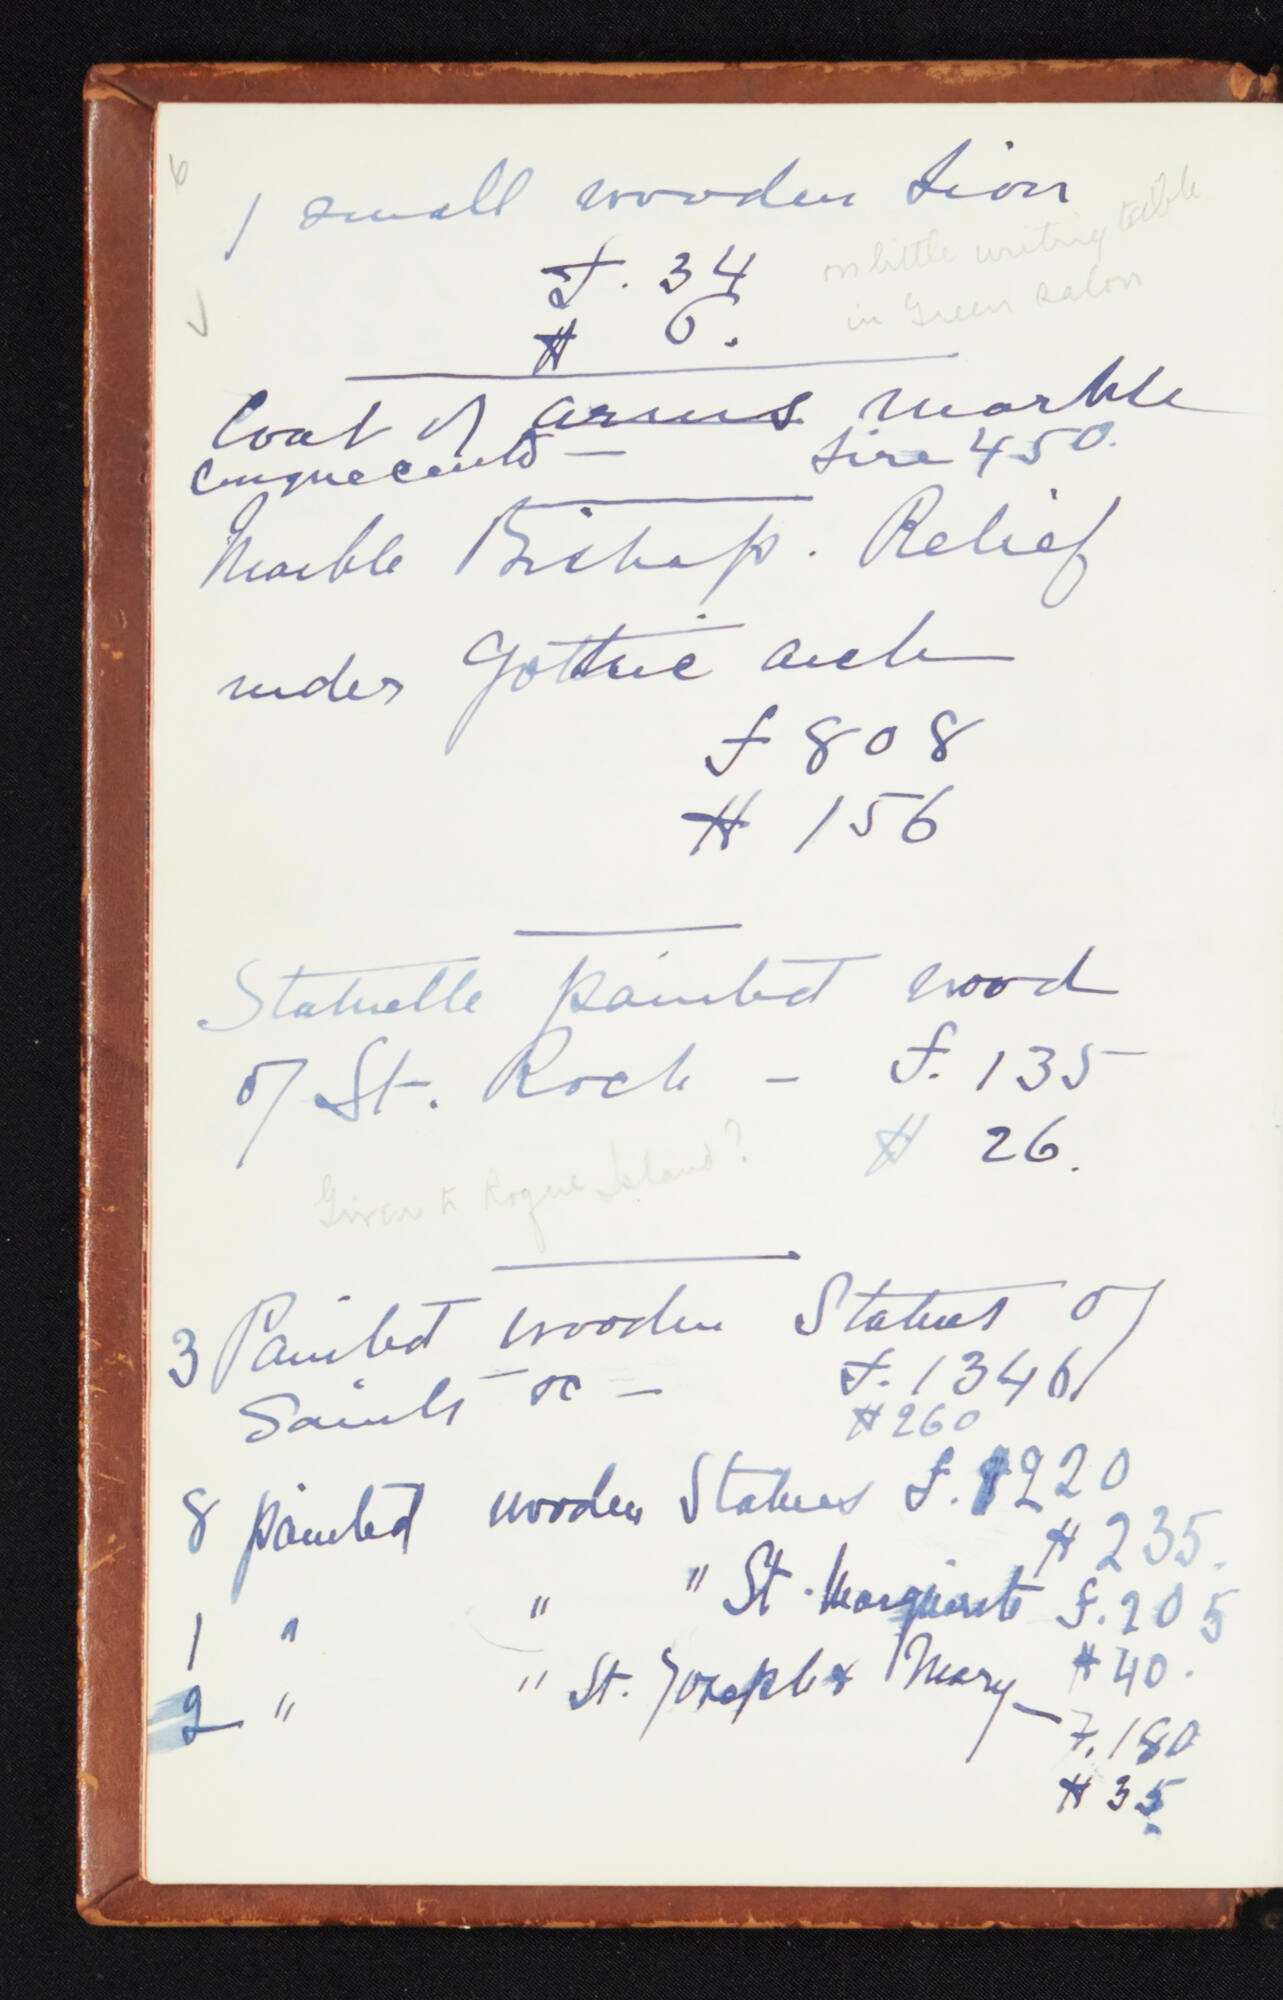 6
1 small wooden Lion
f. 34
on little writing table
in Green Salon
# 6.
Coat of arms marble
Cinquecento — Lire 450.
Marble Bishop. Relief
under Gothic arch
f 808
# 156
Statuette painted wood
of St. Roch – f. 135
# 26.
Given to Rogue Island?
3 Painted wooden Statues of
Saints – &c – f. 1346
# 260
8 painted wooden Statues f. 1220
# 235.
1 " " " St. Marguerite f. 205
# 40.
2 " " St. Joseph & Mary — f. 180
# 35